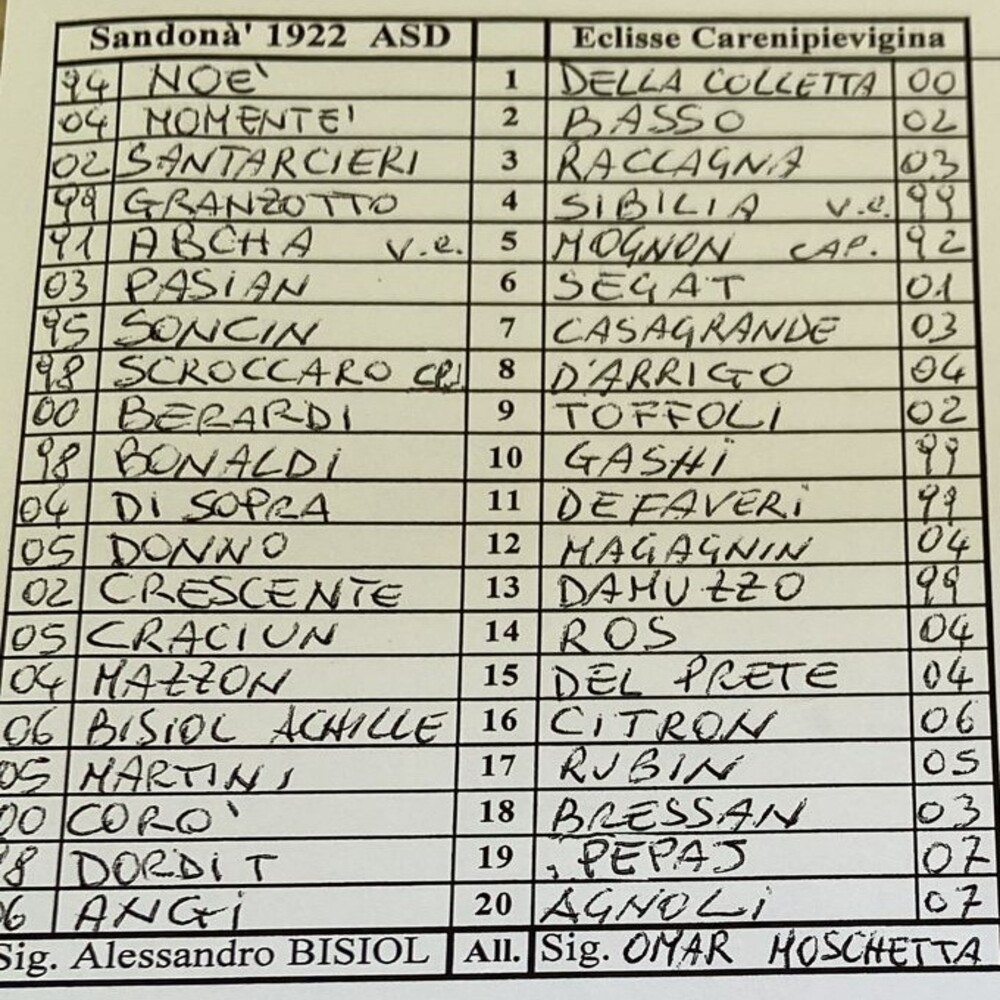 Sandonà' 1922 ASD Eclisse Carenipievigina
94 NOE' 1 DELLA COLLETTA 00
04 MOMENTE' 2 BASSO 02
02 SANTARCIERI 3 RACCAGNA 03
99 GRANZOTTO 4 SIBILIA v.c. 99
91 ABCHA v.c. 5 MOGNON CAP. 92
03 PASIAN 6 SEGAT 01
95 SONCIN 7 CASAGRANDE 03
98 SCROCCARO 8 D'ARRIGO 04
00 BERARDI 9 TOFFOLI 02
98 BONALDI 10 GASHI 99
04 DI SOPRA 11 DE FAVERI 99
05 DONNO 12 MAGAGNIN 04
02 CRESCENTE 13 DAMUZZO 99
05 CRACIUN 14 ROS 04
04 MAZZON 15 DEL PRETE 04
06 BISIOL ACHILLE 16 CITRON 06
05 MARTINI 17 RUBIN 05
00 CORO' 18 BRESSAN 03
98 DORDIT 19 PEPAJ 07
06 ANGI 20 AGNOLI 07
Sig. Alessandro BISIOL All. Sig. OMAR MOSCHETTA